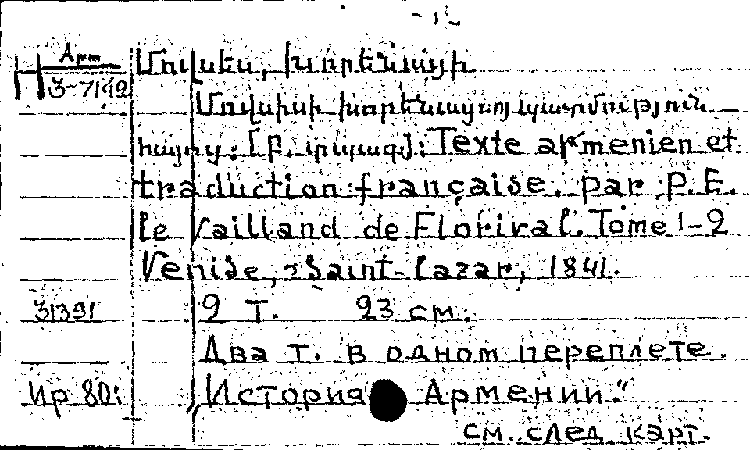 Арм
3-7142
Մովսես, Խորենացի
Մովսիսի Խորենացւոյ պատմութիւն
հայոց: [Բ. տպագ]: Texte armenien et
traduction française. par P.E.
le Vailland de Florival. Tome 1-2
Venise, Saint-Lazar, 1841.
31391 2 т. 23 см.
Два т. в одном переплете.
Ир 80: „История Армении."
см. след. карт.